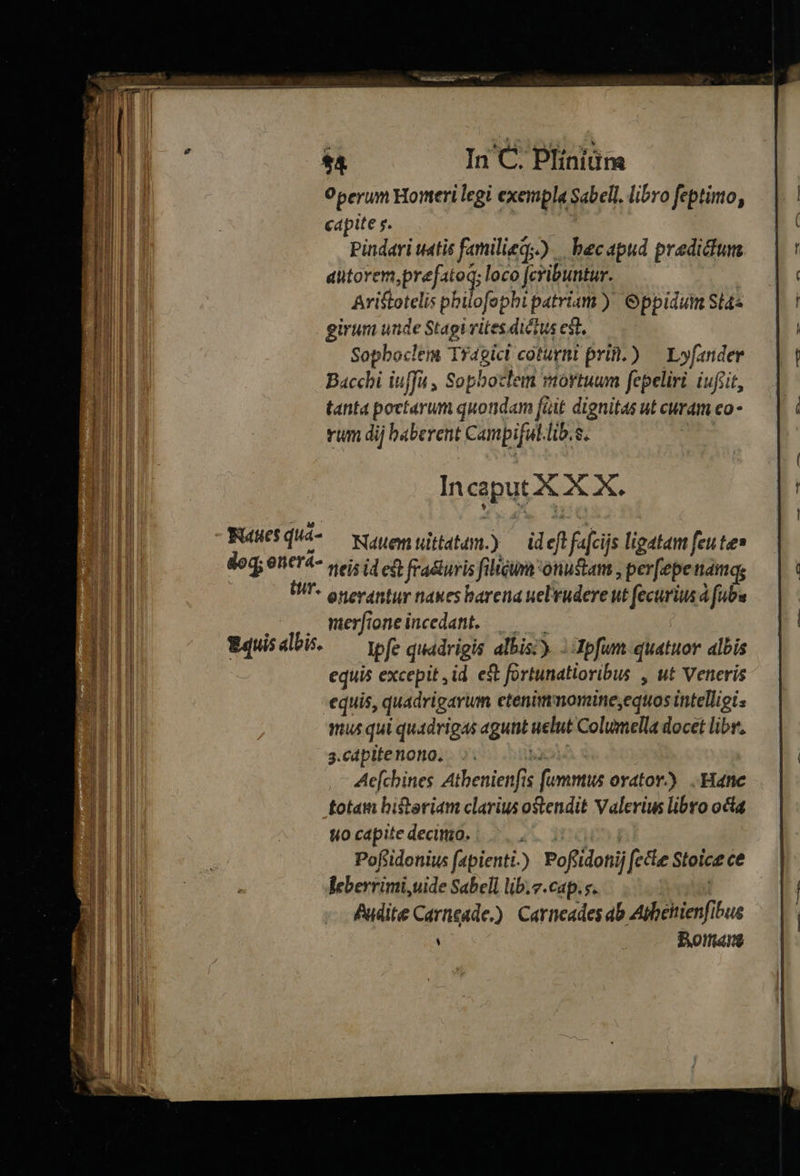 54 In C. Plinium
Operum Homeri legi exempla Sabell. libro ſeptimo,
capite 5.
Pindari uatis familieq́;.) hæc apud prædictum
autorem, præfatoq́; loco ſcribuntur.
Ariſtotelis philoſophi patriam) Oppidum Sta-
girum unde Stagirites dictus eſt.
Sophoclem Tragici coturni prin.) Lyſander
Bacchi iuſſu, Sophoclem mortuum ſepeliri iuſsit,
tanta poetarum quondam fuit dignitas ut curam eo-
rum dij haberent Campiful. lib. 8.
In caput X X X.
Naues quá-
doq́; onerá-
tur.
Nauem uittatam.) id eſt faſcijs ligatam ſeu tæ-
neis id eſt fracturis filicum onuſtam, perſæpe namq́;
onerantur naues harena uel rudere ut ſecurius à ſub-
merſione incedant.
Equis albis.
Ipſe quadrigis albis.) Ipſum quatuor albis
equis excepit, id eſt fortunatioribus, ut Veneris
equis, quadrigarum etenim nomine, equos intelligi-
mus qui quadrigas agunt uelut Columella docet libr.
3. capite nono.
Aeſchines Athenienſis ſummus orator.) Hanc
totam hiſtoriam clarius oſtendit Valerius libro octa
uo capite decimo.
Poſsidonius ſapienti.) Poſsidonij ſectæ Stoicæ ce
leberrimi, uide Sabell lib. 7. cap. 5.
Audite Carneade.) Carneades ab Athenienſibus
Romam